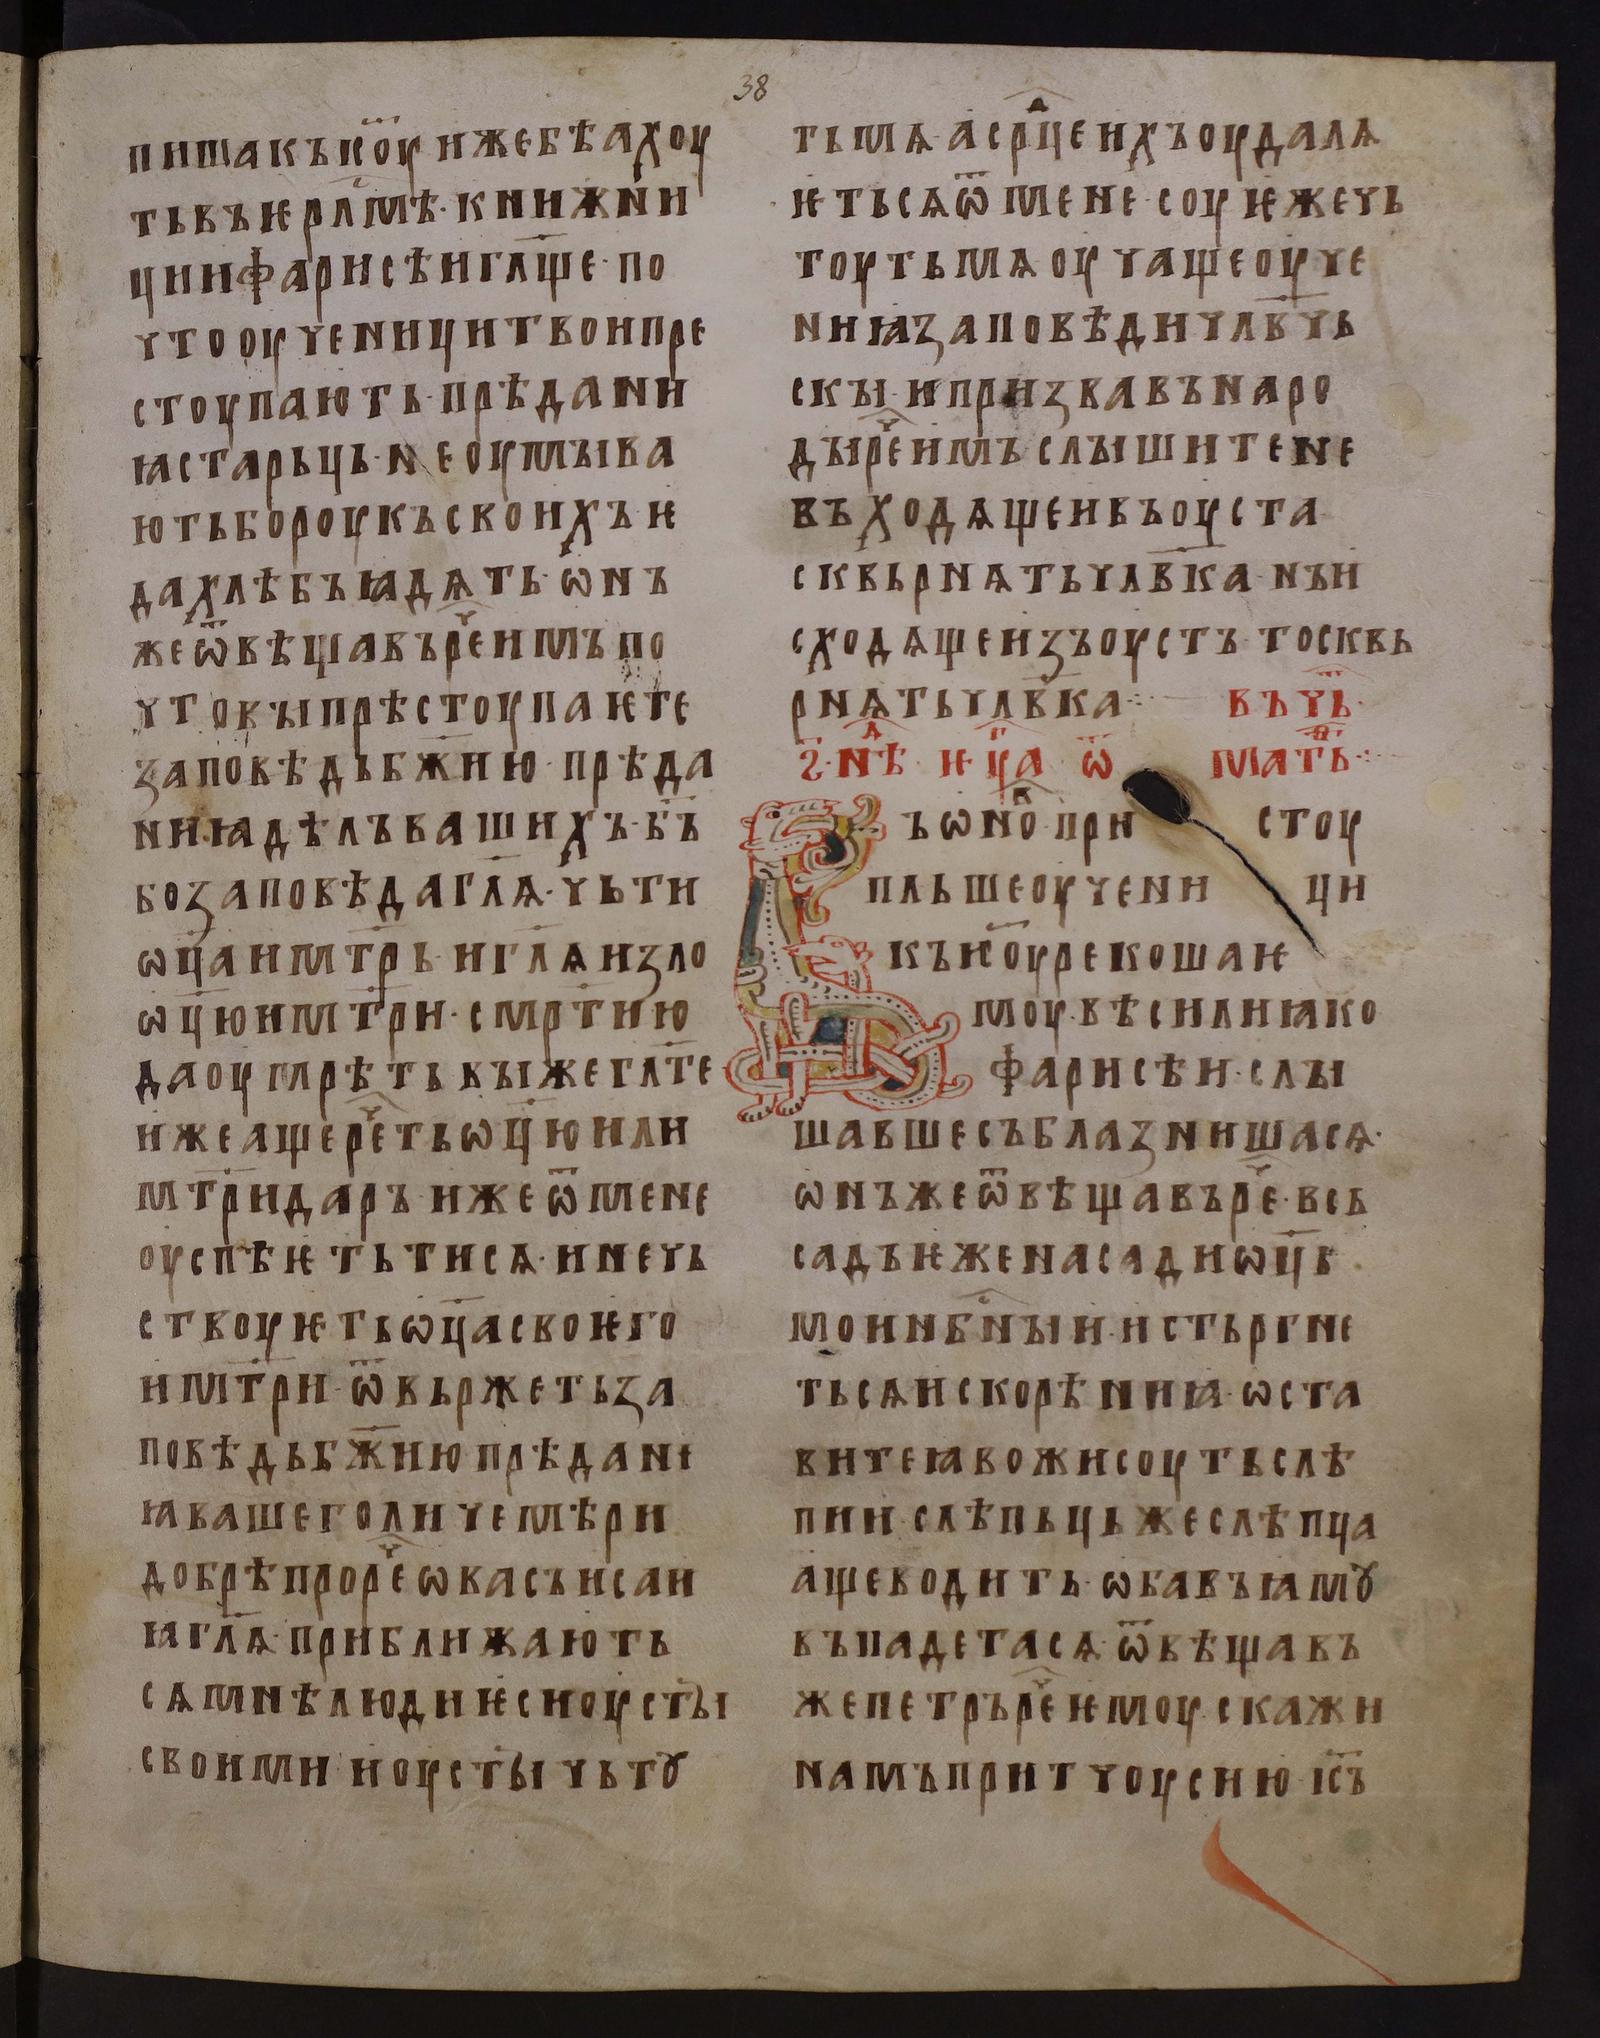 38
пишакъıс҃оу иже бѣахоу
тьвъѥрлⷭ҇мѣ· книжни
циифарисѣиг҃лще· по
чтооученицитвоипре
стоупають· прѣдани
ꙗстарьць· неоумъıва
ютьбороукъсвоихъѥ
дахлѣбъꙗдѧть· ѡнъ
жеѿвѣщавъреⷱ҇имъпо
чтовъıпрѣстоупаѥте
заповѣдьб҃жию· прѣда
ниꙗдѣлѣвашихъ· б҃ъ
бозаповѣдаг҃лѧ· чьти
ѡц҃аим҃трь· иг҃лѧизло
ѡц҃юим҃три· см҃ртию
даоумрѣтьвъıжег҃лте
ижеащереⷱ҇тьѡц҃юили
м҃тридаръ· ижеѿмене
оуспѣѥтьтисѧ· инечь
ствоуѥтьѡц҃асвоѥго
им҃три· ѿвьржетьза
повѣдьб҃жиюпрѣдане
ꙗвашеголичемѣри
добрѣпрореⷱ҇ѡвасъисаи
ꙗг҃лѧ· приближають
сѧмнѣлюдиѥсиоустъı
своими· иоустъıчьтꙋ
тьмѧ· асрⷣцеихъоудалѧ
ѥтьсѧѿмене· соуѥжечь
тоутьмѧоучащеоуче
ниꙗзаповѣдичл҃вчь
скъı· ипризвавънаро
дъıреⷱ҇имъслъıшитене
въходѧщеивъоуста
сквьрнѧтьчл҃вка· нъи
сходѧщеизъоустъ· тосквь
рнѧтьчл҃вка· въчь
г҃· нⷣѣ· ѥ· цⷭ҇а ѿ маⷴ҇ть
Въѡноⷡ· при стоу
пльшеоучени ци
къıс҃оурекошаѥ
моу· вѣсилиꙗко
фарисѣи· слъı
шавшесъблазнишасѧ·
ѡнъжеѿвѣщавъреⷱ҇· всь
садъѥженасадиѡц҃ь
моинбⷭ҇нъıи· истьргне
тьсѧискорѣниꙗ· ѡста
витеꙗвожисоутьслѣ
пии· слѣпьцьжеслѣпца
ащеводить· ѡбавъꙗмꙋ
въпадетасѧ· ѿвѣщавъ
жепетръреⷱ҇ѥмоу· скажи
намъпритчоусию· ıс҃ъ